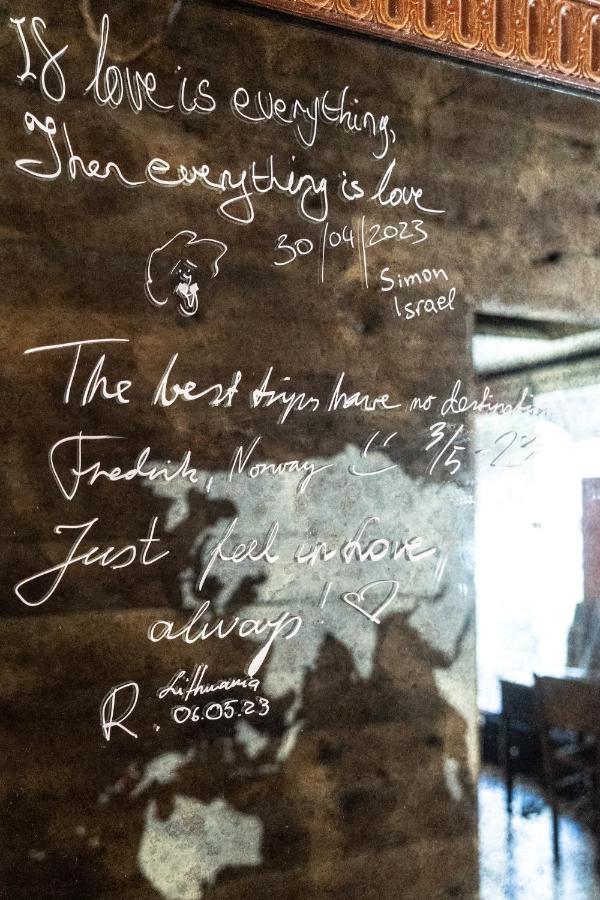 If love is everything,
Then everything is love
30/04/2023
Simon
Israel
The best trips have no destination
Fredrik, Norway 3/5-23
Just feel in Love
always! ♡
R. Lithuania
06.05.23